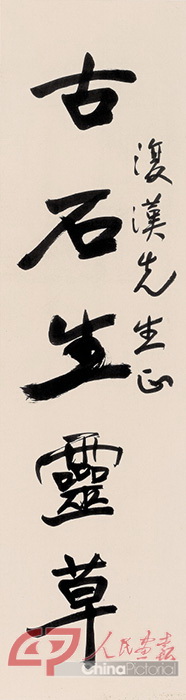 復漢先生正
古石生靈草
人民画报
ChinaPictorial